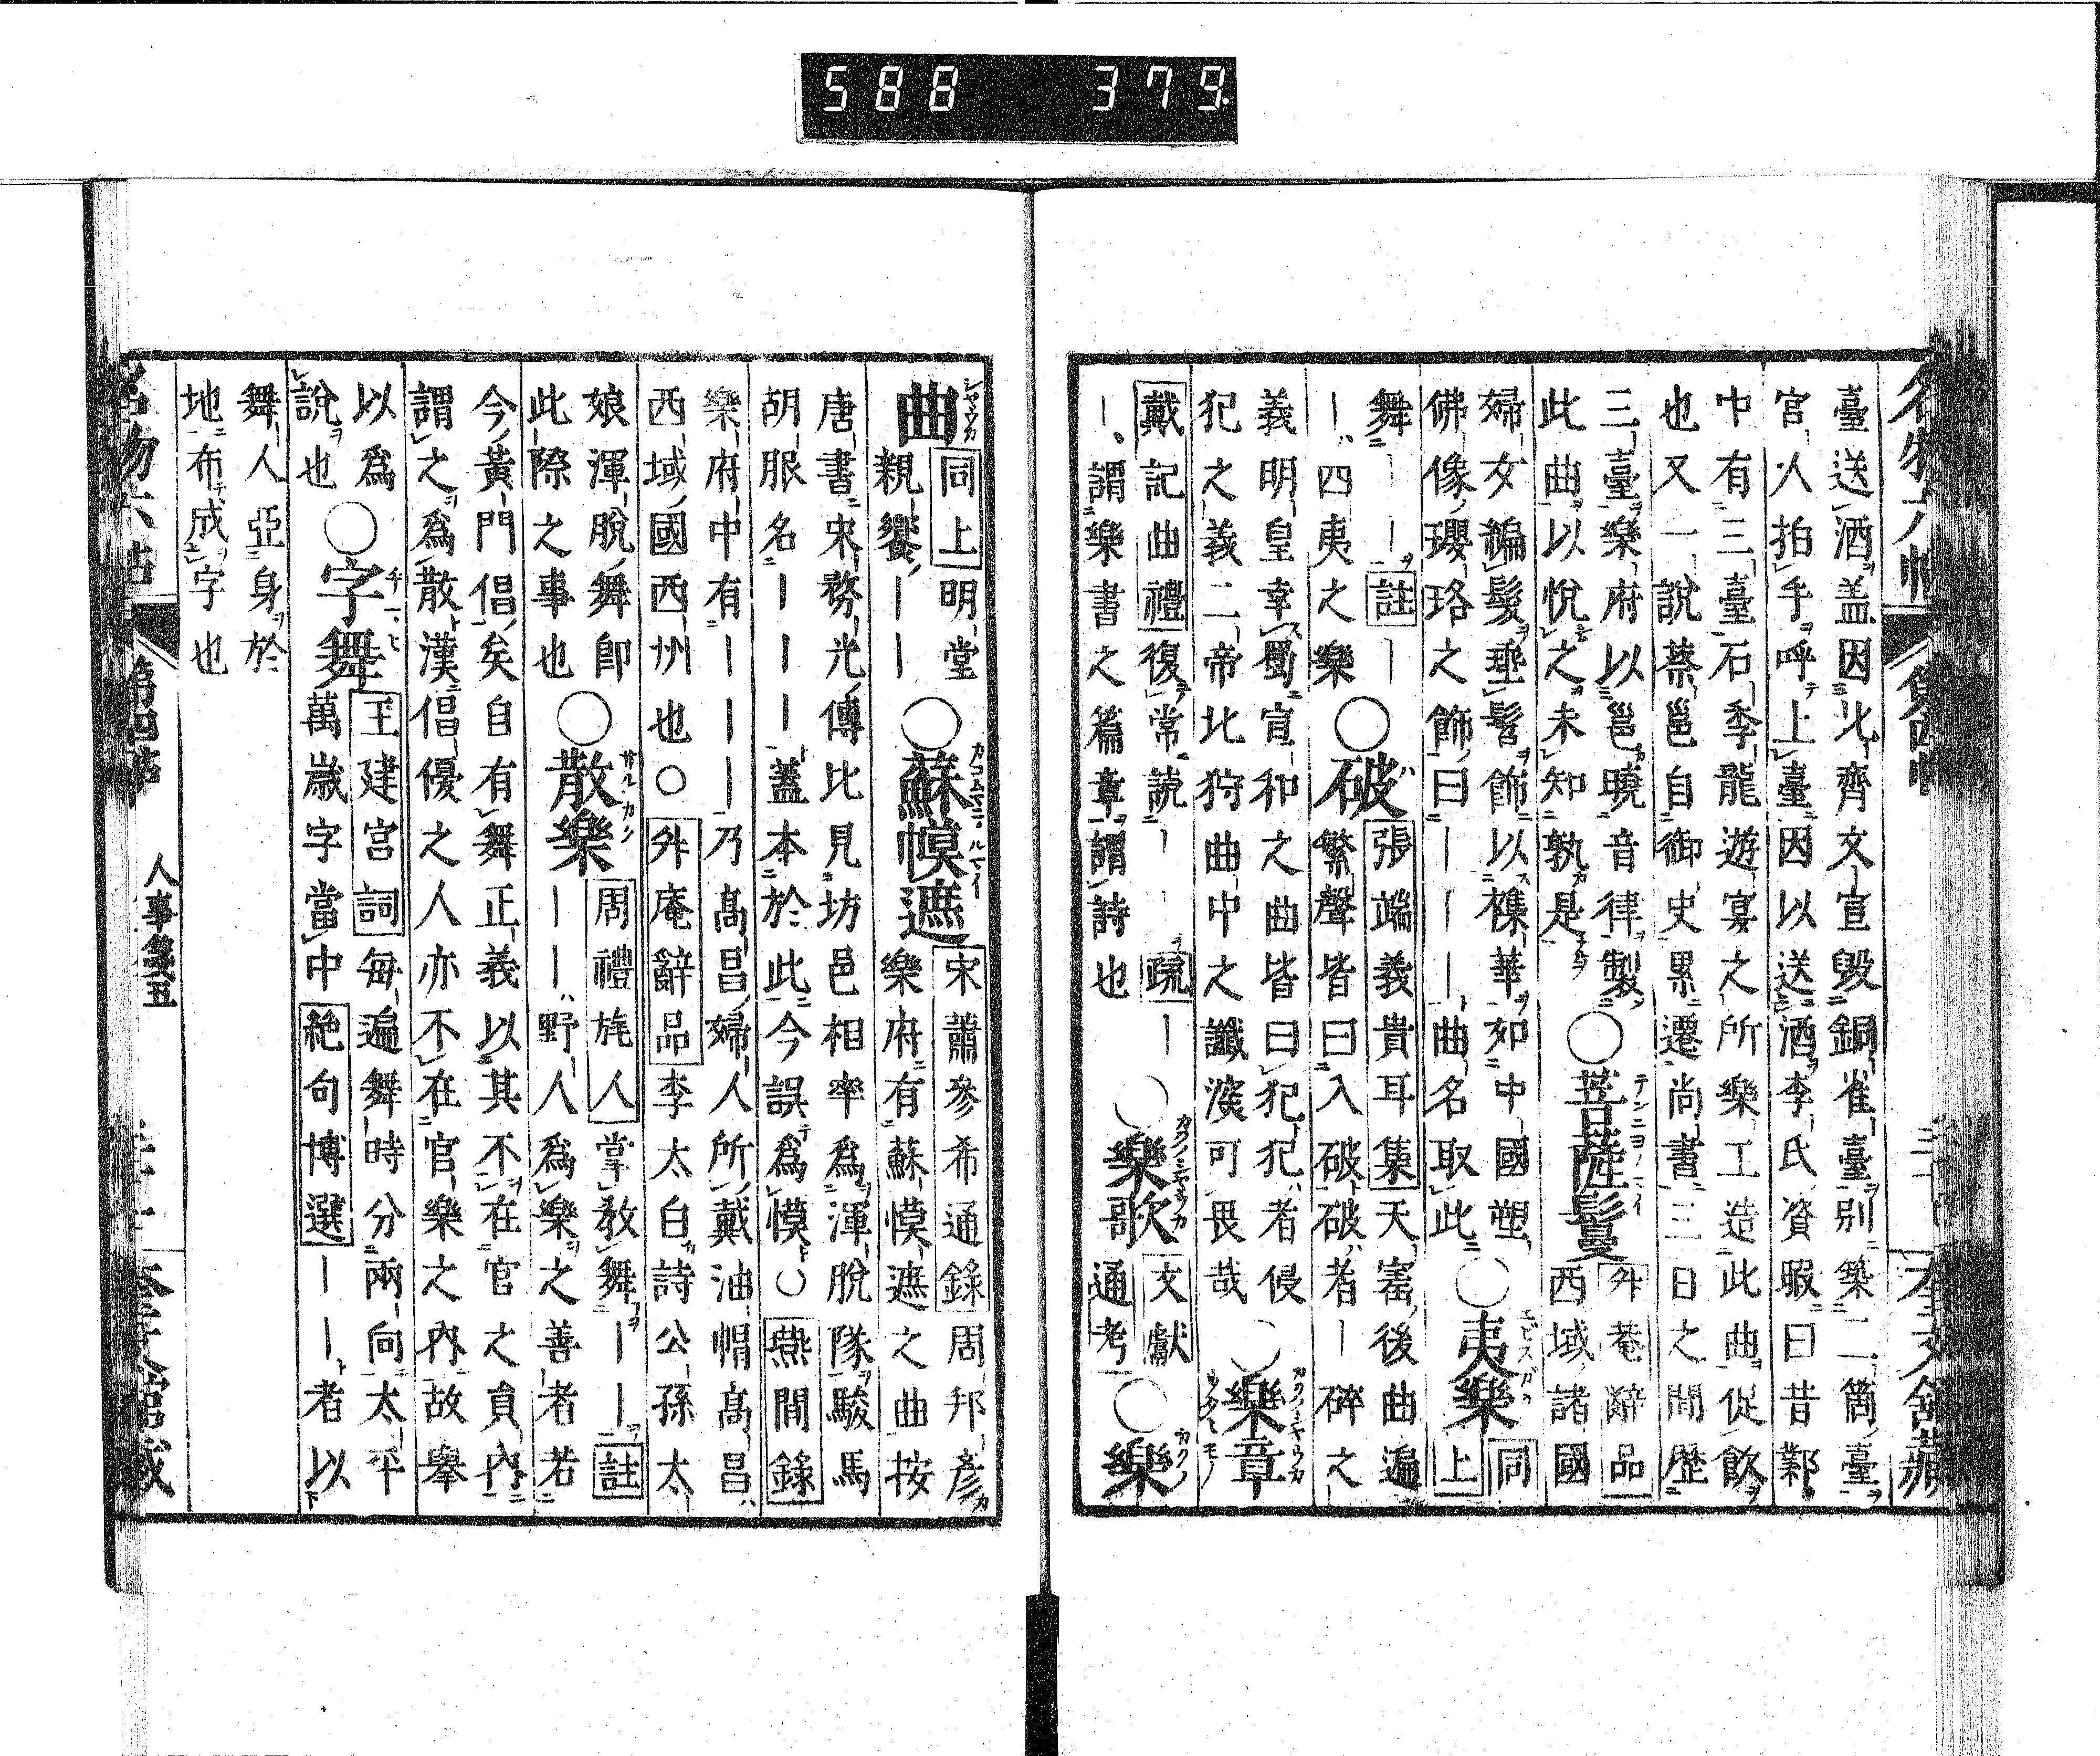 名物六帖 第四帖 奎文館藏
臺送酒盖因北齊文宣毀銅雀臺別築二箇臺
宮人拍手呼上臺因以送酒李氏資暇曰昔鄴
中有三臺石季龍遊宴之所樂工造此曲促飲
也又一說蔡邕自御史累遷尚書三日之間歷
三臺樂府以邕曉音律製
此曲以悅之未知孰是
〇菩薩鬘 テンニヨノマイ
外菴辭品
西域諸國
婦女編髮垂髻飾以襍華如中國塑
佛像瓔珞之飾曰｜｜｜曲名取此
〇夷樂 エビスガク
同
上
舞｜｜註｜
｜四夷之樂
〇破 ハ
張端義貴耳集天寳後曲遍
繁聲皆曰入破破者｜碎之
義明皇幸蜀宣和之曲皆曰犯犯者侵
犯之義二帝北狩曲中之讖深可畏哉
〇樂章
戴記曲禮復常說｜｜疏｜
｜謂樂書之篇章謂詩也
〇樂歌 カクノシヤウカ
文獻
通考
〇樂 カクノ
曲 シヤウカ
同上明堂
親饗｜｜
〇蘇幙遮
宋蕭參希通錄周邦彥
樂府有蘇幙遮之曲按
唐書宋務光傳比見坊邑相率為渾脫隊駿馬
胡服名｜｜｜蓋本於此今誤為幙〇燕間錄
樂府中有｜｜｜乃高昌婦人所戴油帽高昌
西域國西州也〇外庵辭品李太白詩公孫太
娘渾脫舞即
此際之事也
〇散樂 サルカク
周禮旄人掌敎舞｜｜註
｜｜野人為樂之善者若
今黃門倡矣自有舞正義以其不在官之員內
謂之為散漢倡優之人亦不在官樂之內故舉
以為
說也
〇字舞
王建宮詞每遍舞時分兩向太平
萬歲字當中絕句博選｜｜者以
舞人亞身於
地布成字也
名物六帖 第四帖 人事箋五 奎文館藏
588 379